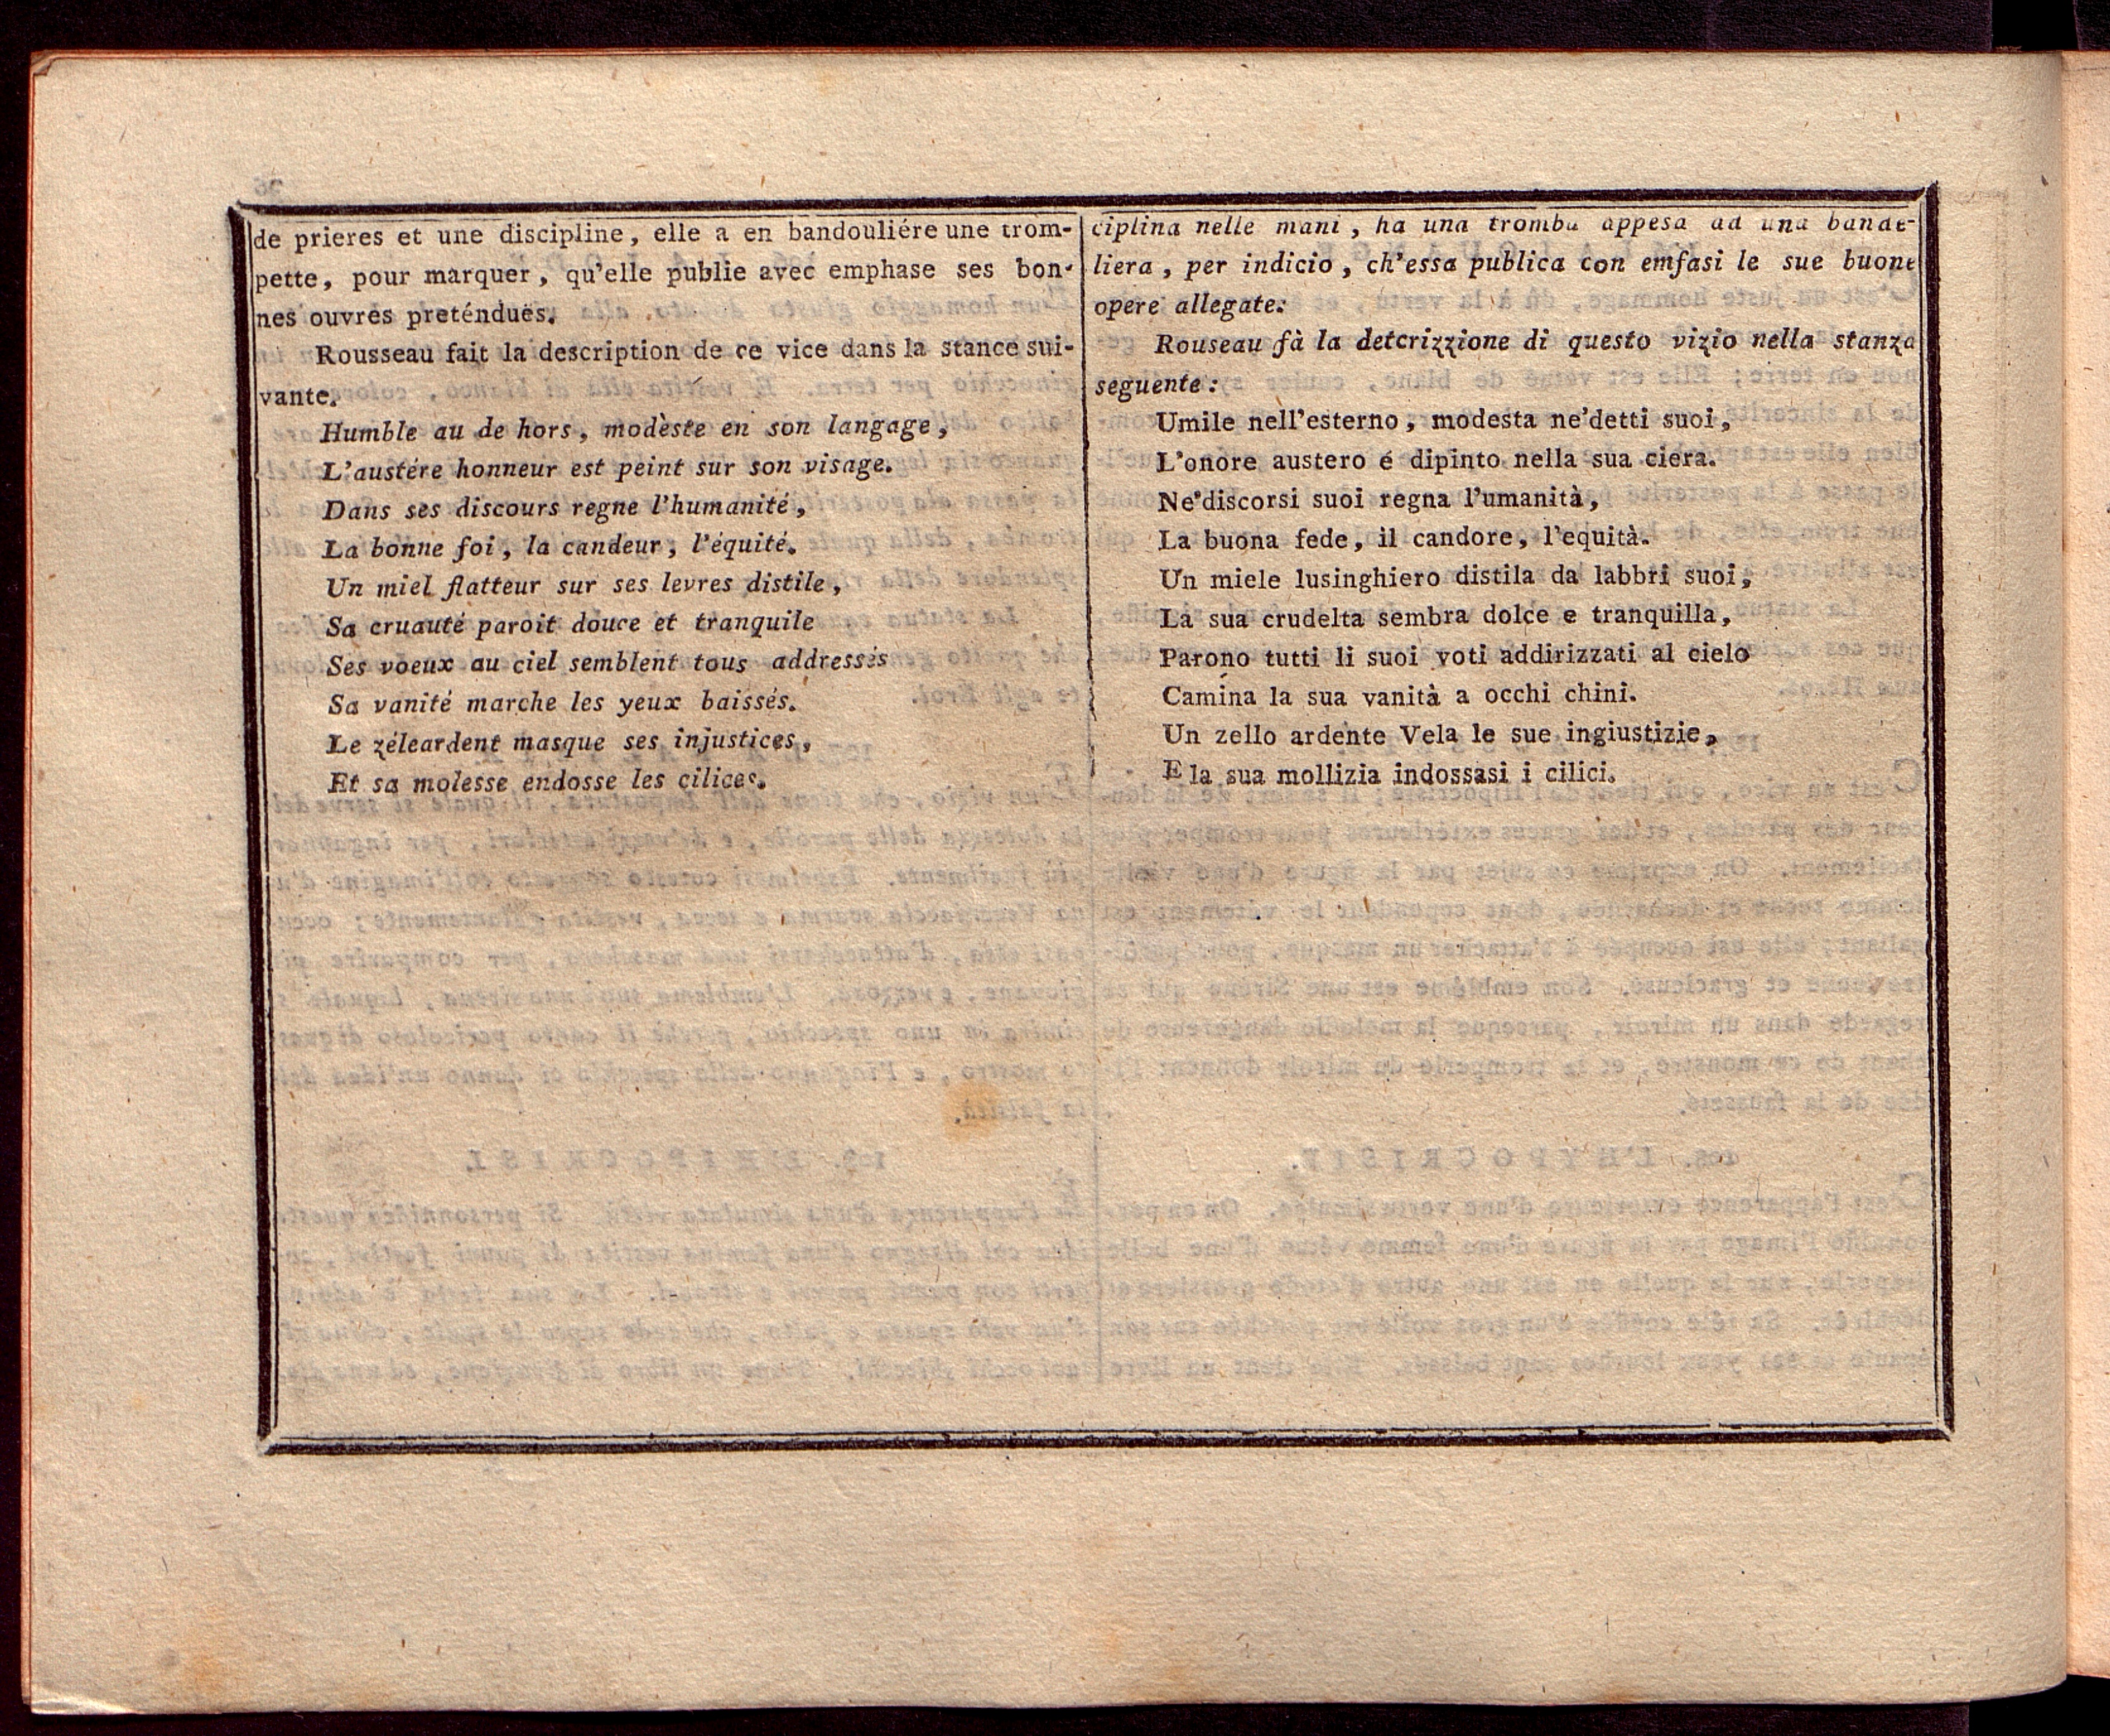 de prieres et une discipline, elle a en bandouliére une trom-
pette, pour marquer, qu'elle publie avec emphase ses bon-
nes ouvres preténduës.
Rousseau fait la description de ce vice dans la stance sui-
vante.
Humble au de hors, modèste en son langage,
L'austére honneur est peint sur son visage.
Dans ses discours regne l'humanité,
La bonne foi, la candeur, l'équité.
Un miel flatteur sur ses levres distile,
Sa cruauté paroit douce et tranquile
Ses voeux au ciel semblent tous addressés
Sa vanité marche les yeux baissés.
Le zéleardent masque ses injustices,
Et sa molesse endosse les cilices.
ciplina nelle mani, ha una tromba appesa ad una bande-
liera, per indicio, ch'essa publica con emfasi le sue buone
opere allegate:
Rouseau fà la detcrizzione di questo vizio nella stanza
seguente:
Umile nell'esterno, modesta ne'detti suoi,
L'onore austero é dipinto nella sua ciera.
Ne'discorsi suoi regna l'umanità,
La buona fede, il candore, l'equità.
Un miele lusinghiero distila da labbri suoi,
La sua crudelta sembra dolce e tranquilla,
Parono tutti li suoi voti addirizzati al cielo
Camina la sua vanità a occhi chini.
Un zello ardente Vela le sue ingiustizie,
E la sua mollizia indossasi i cilici.